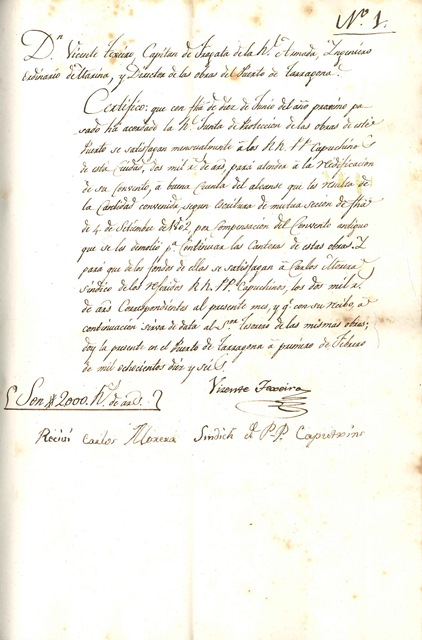 Nº 1.
Dn. Vicente Texeiro, Capitan de Fragata de la Rl. Armada, Ingeniero
Ordinario de Marina, y Director de las obras del Puerto de Tarragona.
Certifico: que con fha de diez de Junio del año proximo pa
sado ha acordado la Rl. Junta de Proteccion de las obras de este
Puerto se satisfagan mensualmente á los RR. PP. Capuchinos
de esta Ciudad, dos mil rs. de aros, para atender á la redificacion
de su Convento, á buena cuenta del alcanse que les resulta de
la Cantidad convenida, segun Escritura de mutua secion de fha
de 4 de Setiembre de 1802, por compensacion del Convento antiguo
que se les demolió pa. Continuar las Canteras de estas obras: Y
para que de los fondos de ellas se satisfagan á Carlos Morera
Síndico de los referidos RR. PP. Capuchinos, los dos mil rs.
de aros Correspondientes al presente mes, y qe. con su recibo, a
continuacion serva de data al Sor. Tesorero de las mismas obras;
doy la presente en el Puerto de Tarragona á primero de Febrero
de mil ochocientos diez y seis
Son 2000. Rs. de aros.
Vizente Texeiro
Recivi Carlos Morera Sindich de P.P. Caputxins